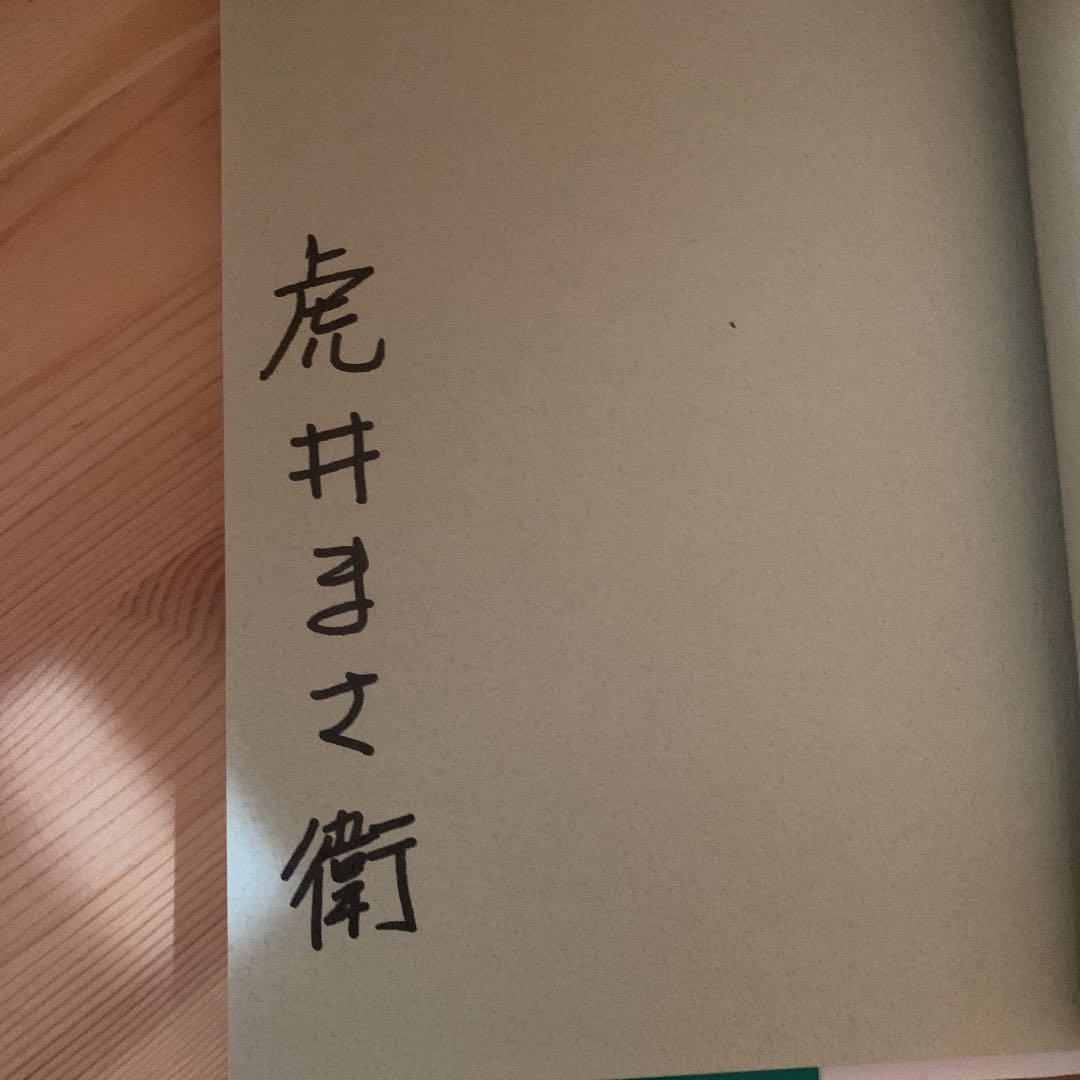 虎井まさ衛